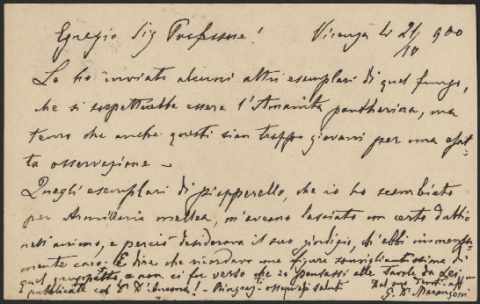 Egregio Sig Professore! Vicenza li 21/10 900
Le ho inviati alcuni altri esemplari di quel fungo,
che si sospetterebbe essere l'Amanita pantherina, ma
temo che anche questi sian troppo giovani per una esat-
ta osservazione –
Quegli esemplari di piopparello, che io ho scambiato
per Armillaria mellea, m'aveano lasciato un certo dubbio
nell'animo, e perciò desiderava il suo giudizio, ch'ebbi
mente caro. E dire che ricordavo una figura somigliantissima di
quel, e non ci fu verso che io pensassi alle tavole da Lei
pubblicate col Dr D'Ancona! – Ringrazi ossequi e saluti Del suo
G. Dr Marangoni